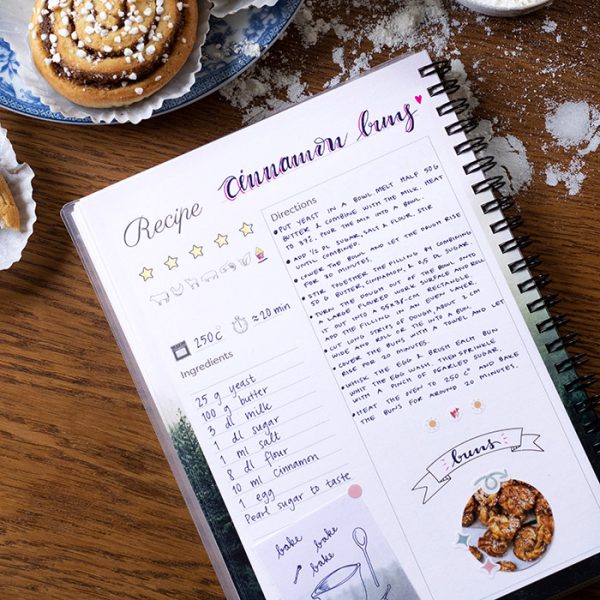 cinnamon buns
Recipe
250 C
≈ 20 min
Ingredients
25 g yeast
100 g butter
3 dl milk
1 dl sugar
1 ml salt
8 dl flour
10 ml cinnamon
1 egg
Pearl sugar to taste
bake
bake
bake
Directions
• PUT YEAST IN A BOWL. MELT HALF 50G
BUTTER & COMBINE WITH THE MILK. HEAT
TO 37°. POUR THE MIX INTO A BOWL.
• ADD 1/2 DL SUGAR, SALT & FLOUR. STIR
UNTIL COMBINED.
• COVER THE BOWL AND LET THE DOUGH RISE
FOR 30 MINUTES.
• STIR TOGETHER THE FILLING BY COMBINING
50 G BUTTER, CINNAMON, & 0,5 DL SUGAR
• TURN THE DOUGH OUT OF THE BOWL ONTO
A LARGE FLOURED WORK SURFACE AND ROLL
IT OUT INTO A 55X35-CM RECTANGLE
ADD THE FILLING IN AN EVEN LAYER.
• CUT LONG STRIPS OF DOUGH, ABOUT 2 CM
WIDE AND ROLL OR TIE INTO A BUN
• COVER THE BUNS WITH A TOWEL AND LET
RISE FOR 20 MINUTES.
• WHISK THE EGG & BRUSH EACH BUN
WHIT THE EGG WASH. THEN SPRINKLE
WITH A PINCH OF PEARLED SUGAR.
• HEAT THE OVEN TO 250 C° AND BAKE
THE BUNS FOR AROUND 20 MINUTES.
buns